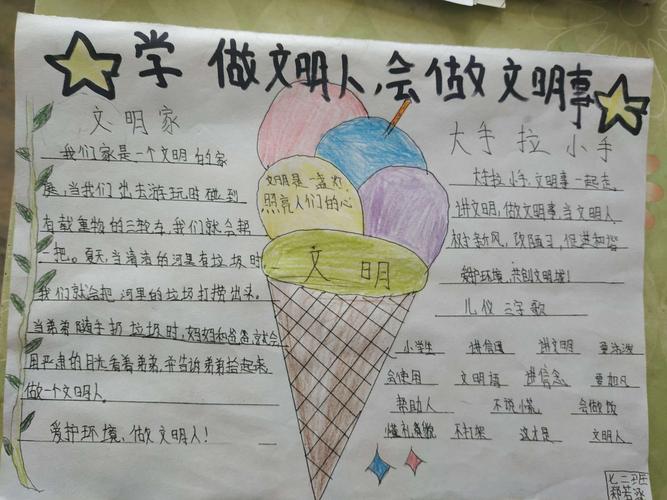 学做文明人,会做文明事
文明家
我们家是一个文明的家
庭,当我们出去游玩时碰到
有载重物的三轮车,我们就会帮
一把。夏天,当清清的河里有垃圾时,
我们就会把河里的垃圾打捞出来。
当弟弟随手扔垃圾时,妈妈和爸爸就会
用严肃的目光看着弟弟,并告诉弟弟捡起来,
做一个文明人。
爱护环境、做文明人!
文明是一盏灯,
照亮人们的心
文明
大手拉小手
大手拉小手,文明事一起走,
讲文明,做文明事,当文明人,
树新风,改陋习,促进和谐
爱护环境,共创文明城!
礼仪三字歌
小学生 讲信用 讲文明
会使用 文明语 讲信念
帮助人 不说谎 会做饭
懂礼貌 不打架 这才是 文明人
七二班